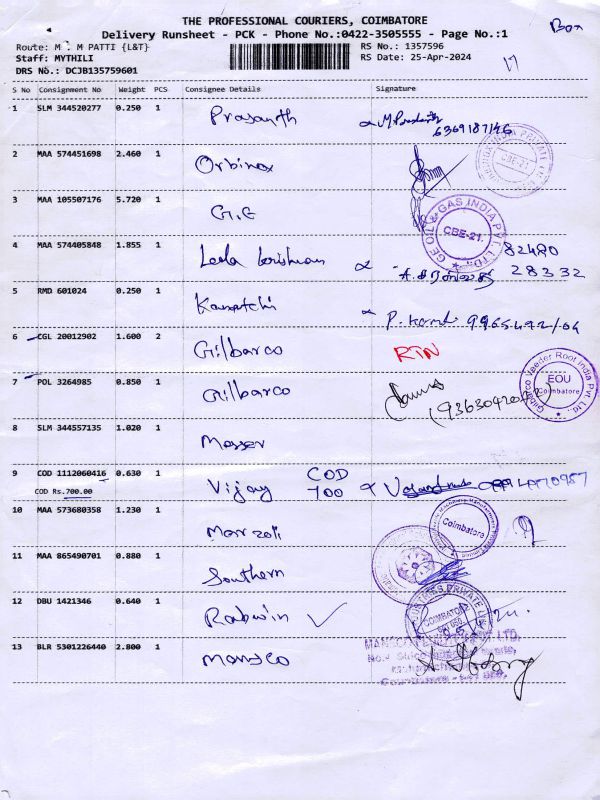 THE PROFESSIONAL COURIERS, COIMBATORE
Delivery Runsheet - PCK - Phone No.:0422-3505555 - Page No.:1
Box
Route: M . M PATTI {L&T}
RS No.: 1357596
Staff: MYTHILI
RS Date: 25-Apr-2024
DRS No.: DCJB135759601
S No Consignment No Weight PCS Consignee Details Signature
1 SLM 344520277 0.250 1 Prasanth
6369187146
2 MAA 574451698 2.460 1 Orbinox
CBE-21
3 MAA 105507176 5.720 1 G.E
GE OIL & GAS INDIA PVT. LTD.
CBE-21.
4 MAA 574405848 1.855 1 Leela
82480
28332
5 RMD 601024 0.250 1
P.
6 CGL 20012902 1.600 2 Gilbarco RTN
Gilbarco Veeder Root India Pvt. Ltd.,
EOU
Coimbatore
7 POL 3264985 0.850 1 Gilbarco
8 SLM 344557135 1.020 1 Messer
9 COD 1112060416 0.630 1 Vijay COD 700
COD Rs.700.00
10 MAA 573680358 1.230 1 Marzoli
Coimbatore
11 MAA 865490701 0.880 1 Southern
12 DBU 1421346 0.640 1
PRIVATE
13 BLR 5301226440 2.800 1